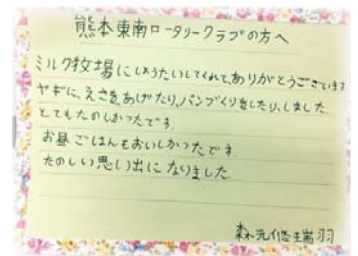 熊本東南ロータリークラブの方へ
ミルク牧場にしょうたいしてくれて、ありがとうございます
ヤギに、えさをあげたり、パンづくりをしたり、しました。
とてもたのしかったです。
お昼ごはんもおいしかったです。
たのしい思い出になりました。
森元悠瑞羽